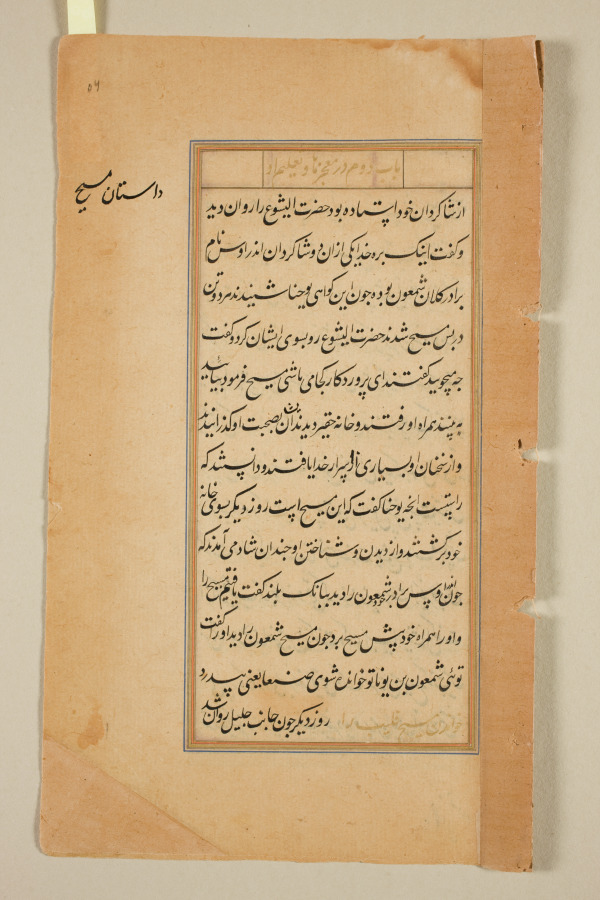 ۵۴
باب دوم در معجزها و تعلیم او
داستان مسیح
از شاکردان خود ایستاده بود حضرت ایشوع را روان دید
و کفت اینک بره خدا یکی ازان دو شاکردان اندراوس نام
برادر کلان شمعون بوده جون این کواهی یوحنا شنیدند هر دو تن
در پس مسیح شدند حضرت ایشوع رو بسوی ایشان کرد و کفت
جه میجویید کفتند ای پروردکار کجا می باشی مسیح فرمود بیایید
به بینید همراه او رفتند و خانه حقیر دیدند آن شب بصحبت او کذرانیدند
و از سخنان او بسیاری از اسرار خدا یافتند و دانستند که
راستست آنچه یوحنا کفت که این مسیح است روز دیکر بسوی خانه
خود برکشتند و از دیدن و شناختن او جندان شادمی آمدند که
جون اندراوس برادر خود شمعون را دید ببانک بلند کفت یافتیم مسیح را
و او را همراه خود پیش مسیح برد جون مسیح شمعون را دید او را کفت
توئی شمعون بن یونا تو خوانده شوی صفا یعنی پیدرو
خواندن مسیح فلیپ را روز دیکر جون جانب جلیل روان شد